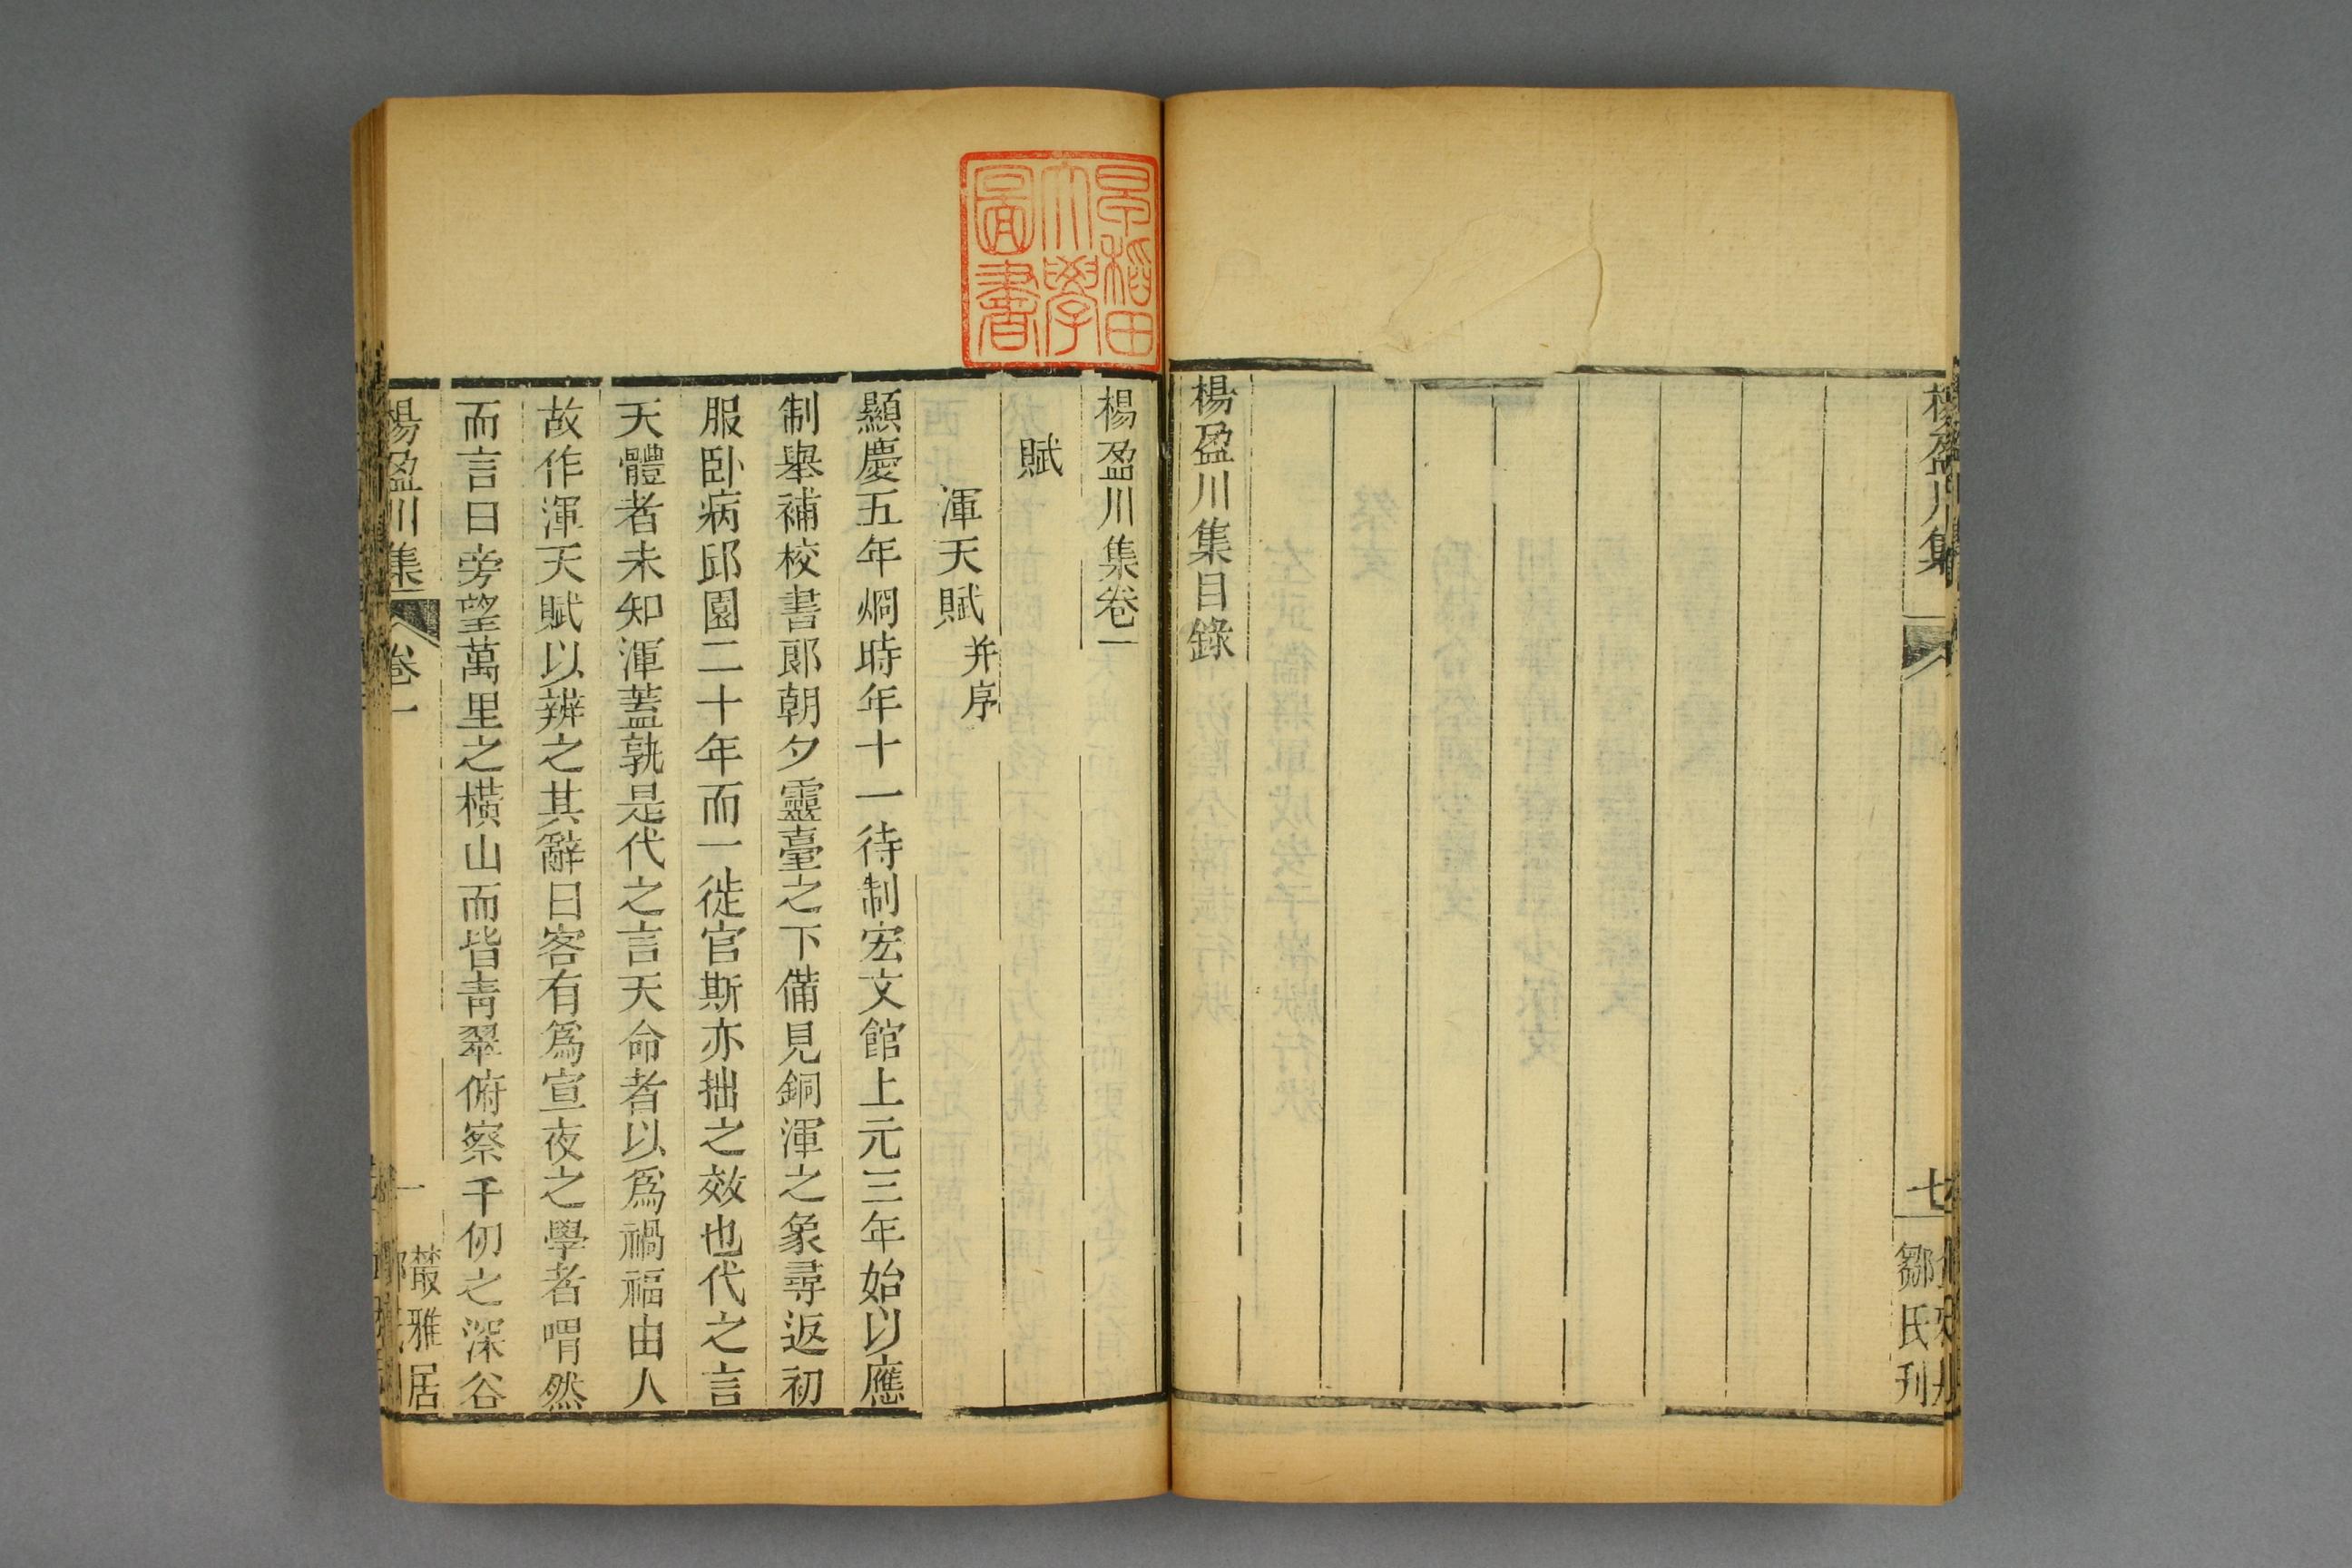 楊盈川集
七
鄒氏刋
楊盈川集目錄
早稻田
大學
圖書
楊盈川集卷一
賦
渾天賦并序
顯慶五年烱時年十一待制宏文館上元三年始以應
制舉補校書郞朝夕靈臺之下備見銅渾之象尋返初
服卧病邱園二十年而一徙官斯亦拙之效也代之言
天體者未知渾蓋孰是代之言天命者以爲禍福由人
故作渾天賦以辨之其辭曰客有爲宣夜之學者喟然
而言曰旁望萬里之橫山而皆靑翠俯察千仞之深谷
楊盈川集
卷一
一
叢雅居